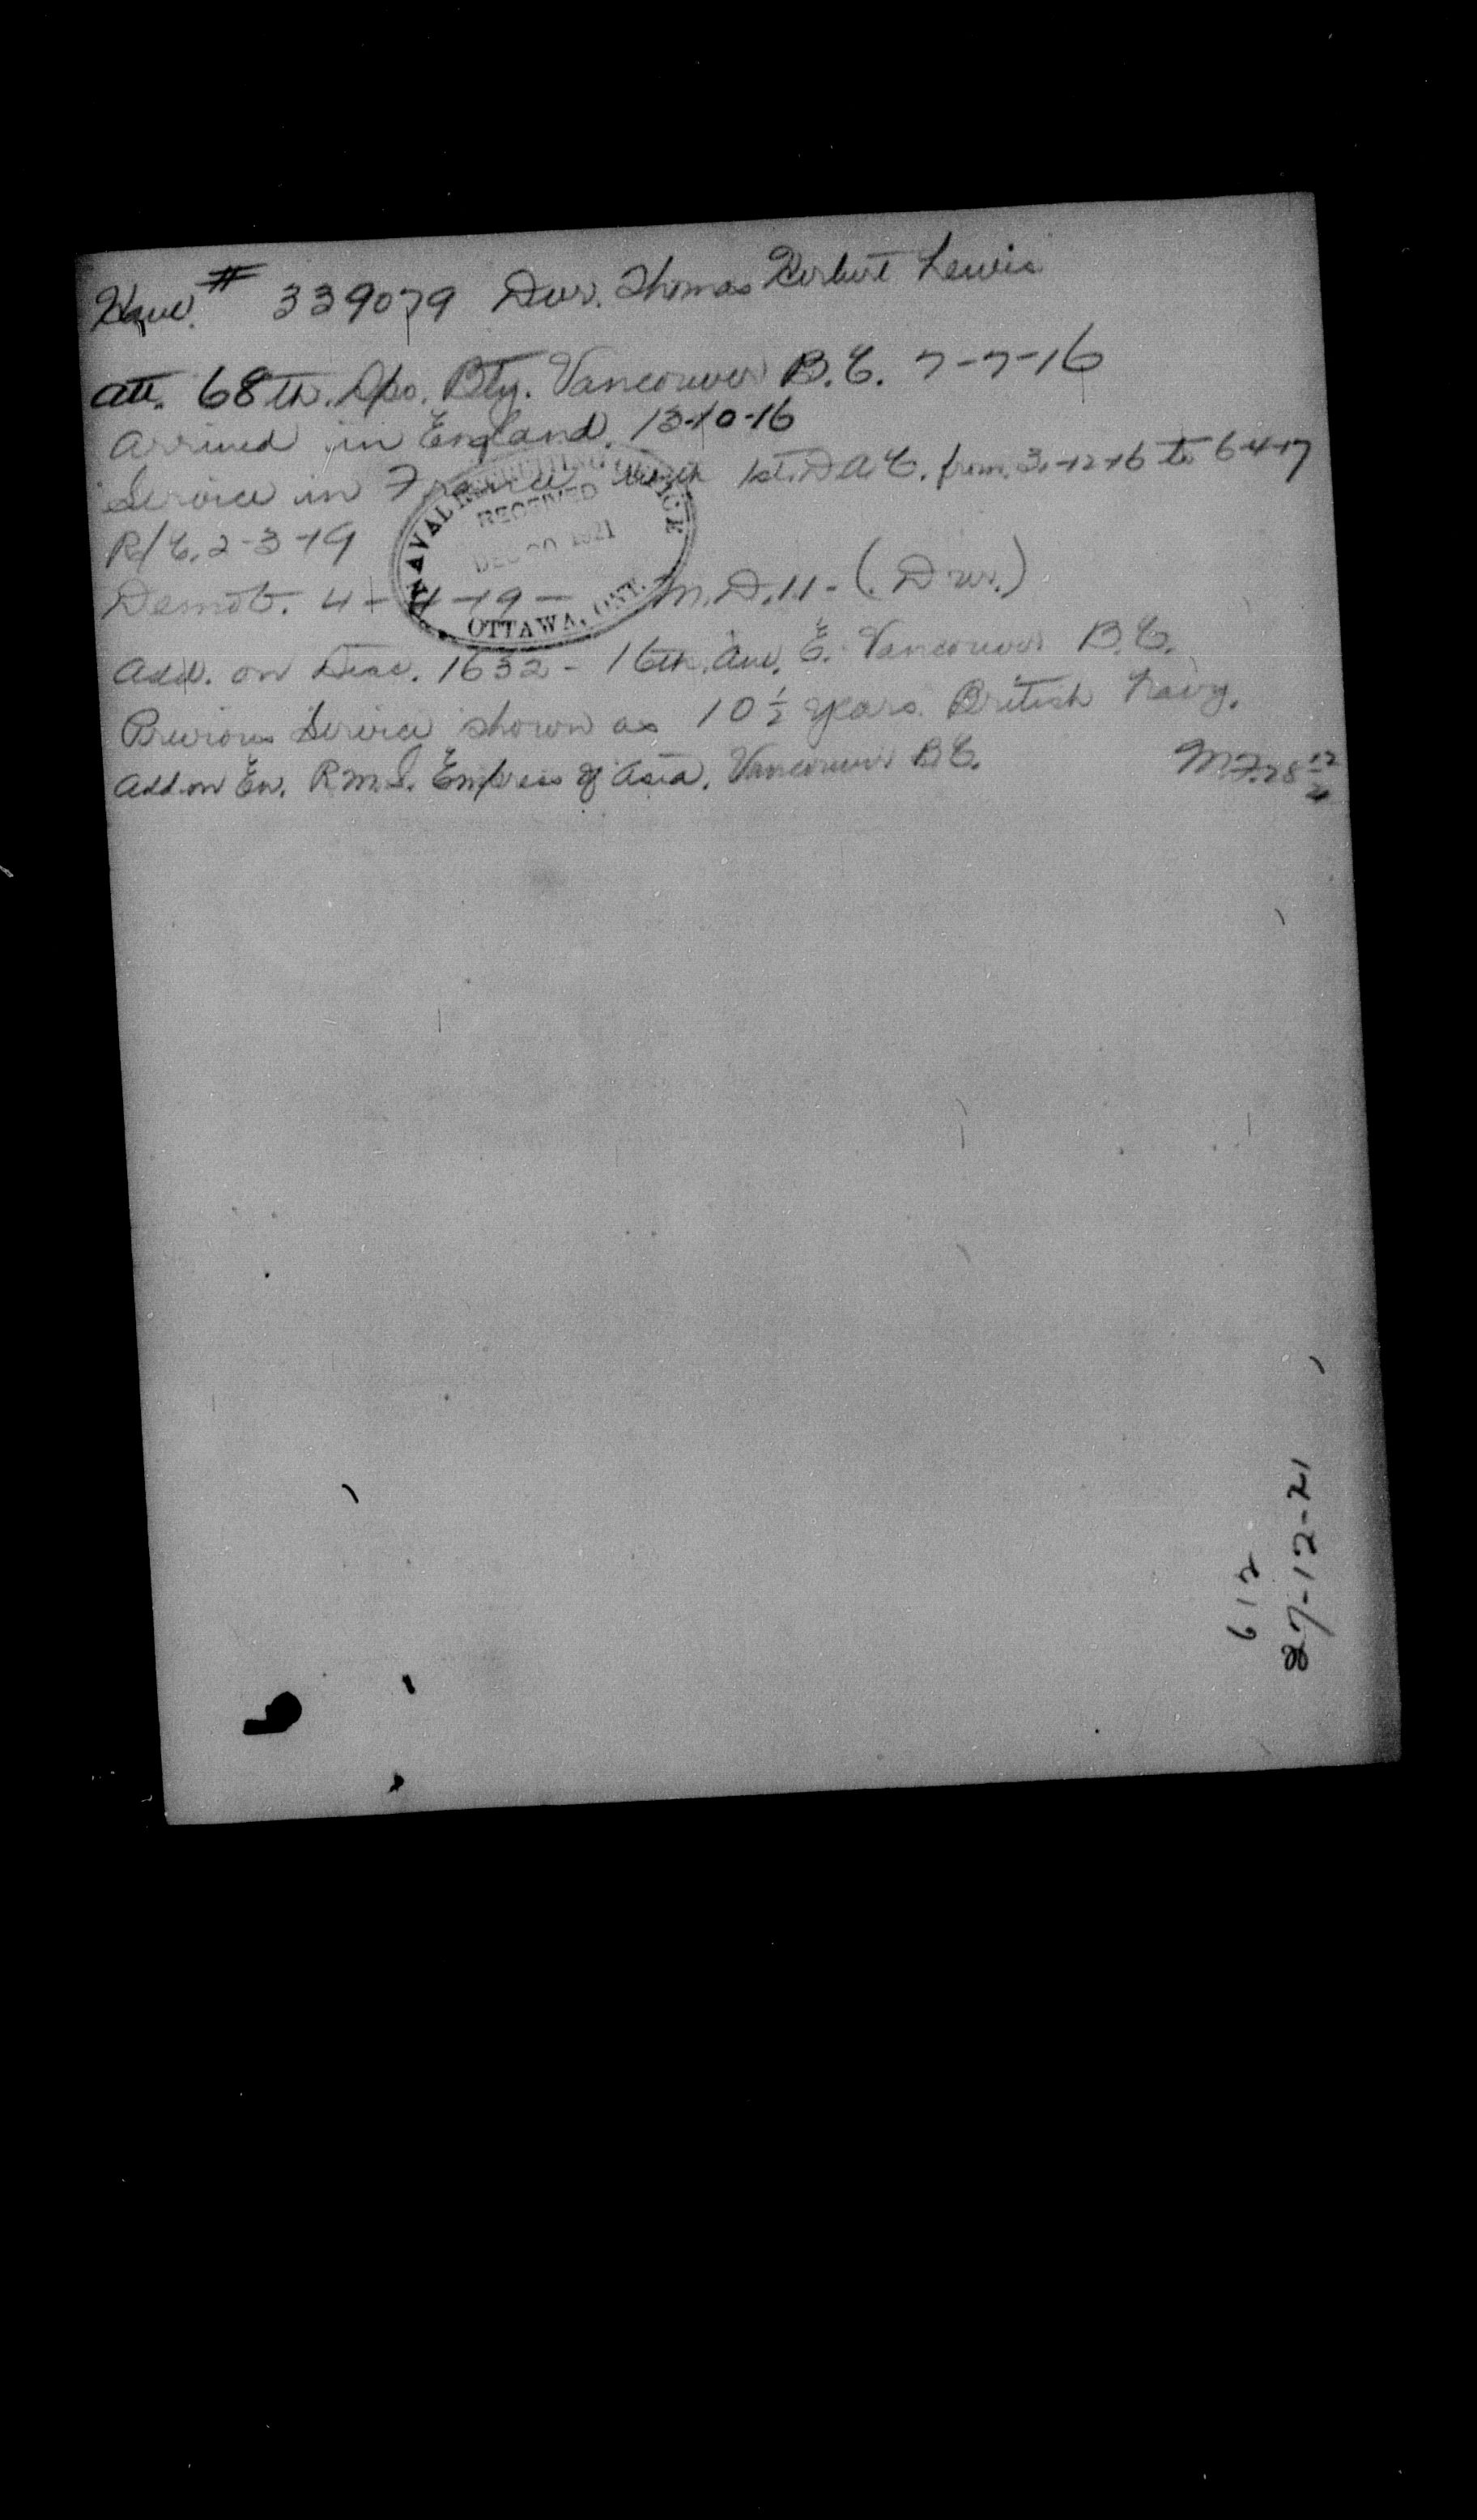 Have # 339079 Dvr. Thomas Herbert Lewis
att. 68th. Dpo. Bty. Vancouver B.C. 7-7-16
Arrived in England. 13-10-16
Service in France with 1st. D.A.C. from 3-12-16 to 6-4-17
R/C. 2-3-19
Demob. 4-4-19 - M.D. 11 - (Dvr.)
NAVAL RECRUITING OFFICE
RECEIVED
DEC 30 1921
OTTAWA, ONT.
Add. on Disc. 1632 - 16th. Ave. E. Vancouver B.C.
Previous Service shown as 10½ years British Navy.
Add on En. R.M.S. Empress of Asia. Vancouver B.C.
M.F. 28 12/21
612
27-12-21